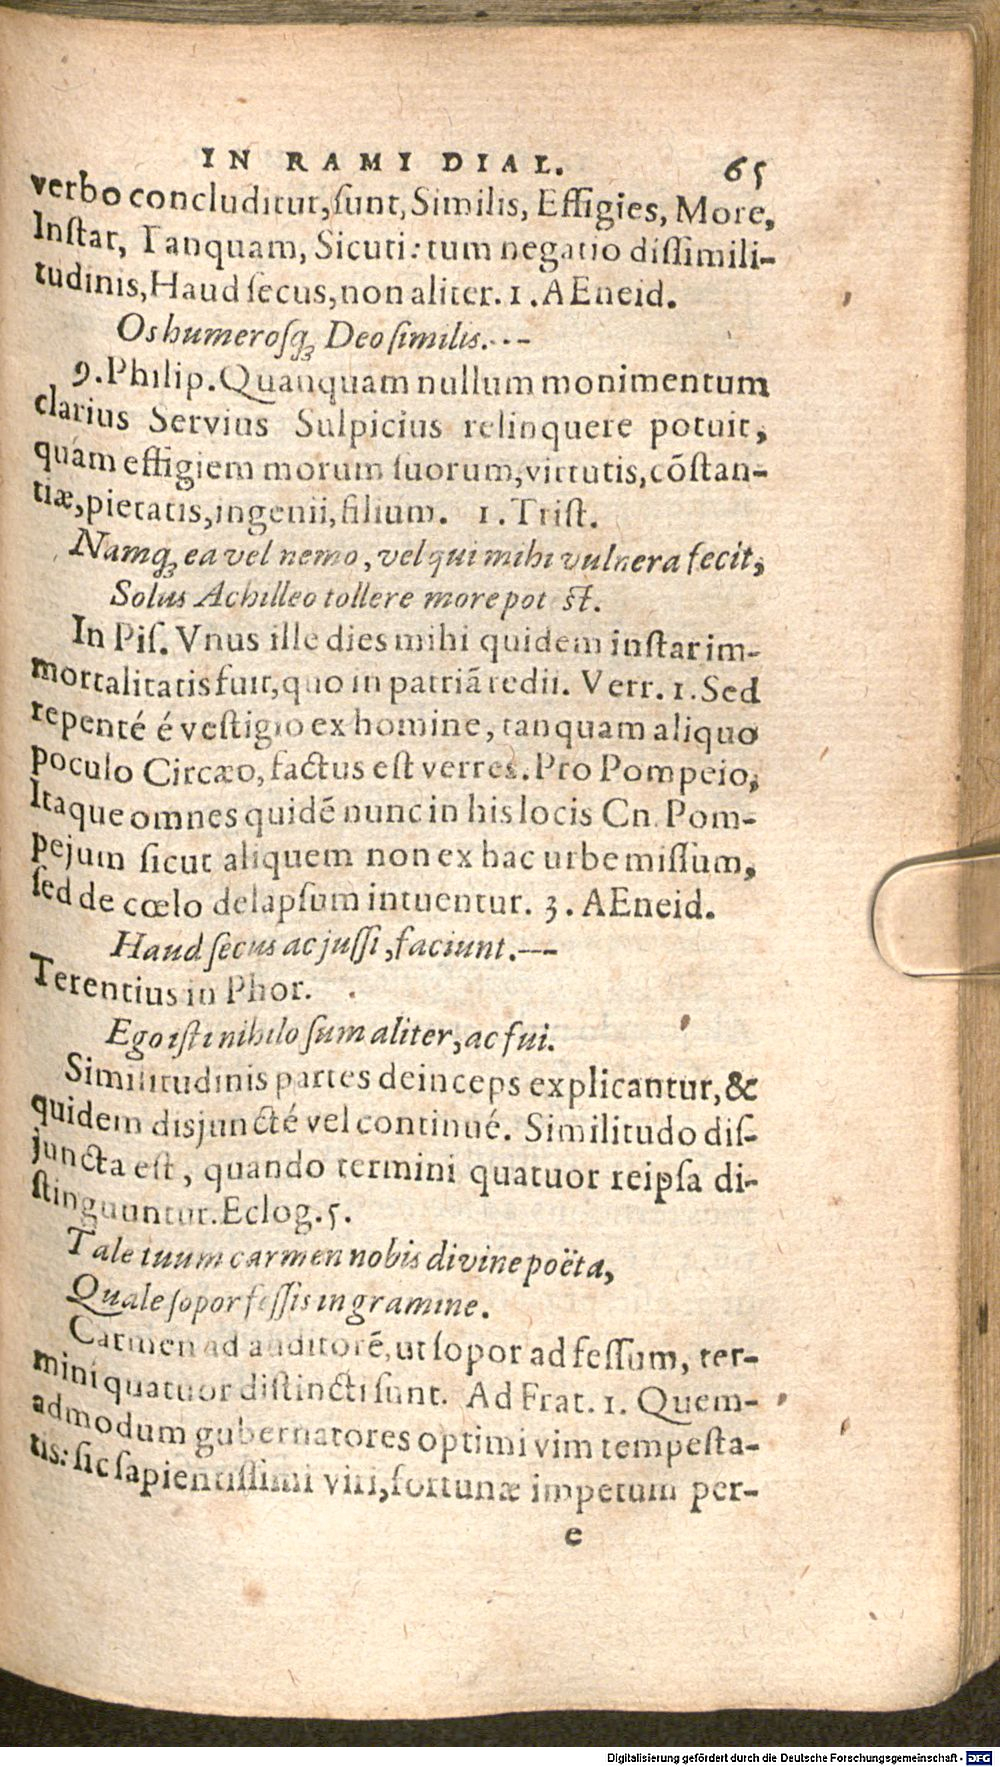 IN RAMI DIAL. 65
verbo concluditur, ſunt, Similis, Effigies, More,
Inſtar, Tanquam, Sicuti: tum negatio diſſimili-
tudinis, Haud ſecus, non aliter. 1. AEneid.
Os humeroſq́; Deo ſimilis.--
9. Philip. Quanquam nullum monimentum
clarius Servius Sulpicius relinquere potuit,
quám effigiem morum ſuorum, virtutis, cōſtan-
tiæ, pietatis, ingenii, filium. 1. Triſt.
Namq́; ea vel nemo, vel qui mihi vulnera fecit,
Solus Achilleo tollere more pot ſt.
In Piſ. Vnus ille dies mihi quidem inſtar im-
mortalitatis fuit, quo in patriā redii. Verr. 1. Sed
repenté é veſtigio ex homine, tanquam aliquo
poculo Circæo, factus eſt verres. Pro Pompeio,
Itaque omnes quidē nunc in his locis Cn. Pom-
pejum ſicut aliquem non ex hac urbe miſſum,
ſed de cœlo delapſum intuentur. 3. AEneid.
Haud ſecus ac juſſi, faciunt.--
Terentius in Phor.
Ego iſti nihilo ſum aliter, ac fui.
Similitudinis partes deinceps explicantur, &
quidem disjuncté vel continué. Similitudo diſ-
juncta eſt, quando termini quatuor reipſa di-
ſtinguuntur. Eclog. 5.
Tale tuum carmen nobis divine poëta,
Quale ſopor feſſis in gramine.
Carmen ad auditorē, ut ſopor ad feſſum, ter-
mini quatuor diſtincti ſunt. Ad Frat. 1. Quem-
admodum gubernatores optimi vim tempeſta-
tis: ſic ſapientiſſimi viri, fortunæ impetum per-
e
Digitalisierung gefördert durch die Deutsche Forschungsgemeinschaft - DFG